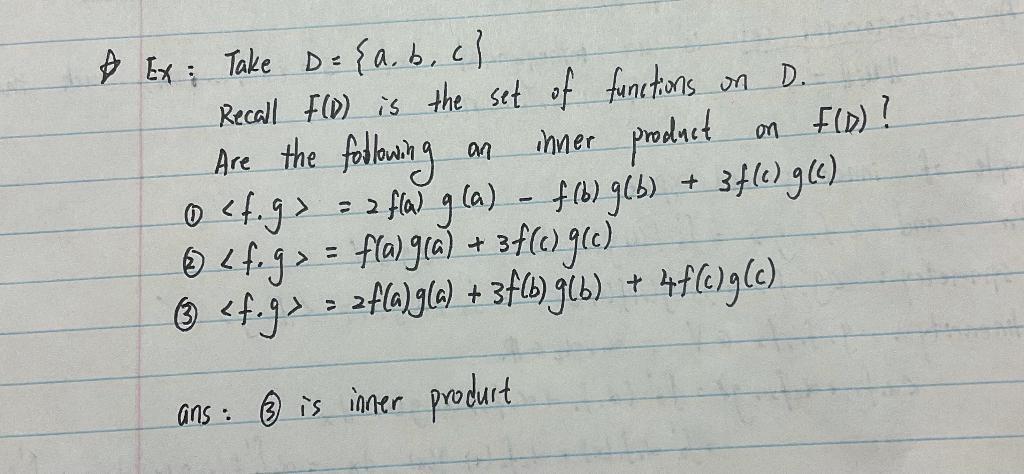 ☆ Ex : Take D = {a, b, c}
Recall F(D) is the set of functions on D.
Are the following an inner product on F(D) ?
① <f.g> = 2 f(a) g(a) - f(b) g(b) + 3f(c) g(c)
② <f.g> = f(a)g(a) + 3f(c)g(c)
③ <f.g> = 2f(a)g(a) + 3f(b)g(b) + 4f(c)g(c)
ans : ③ is inner product